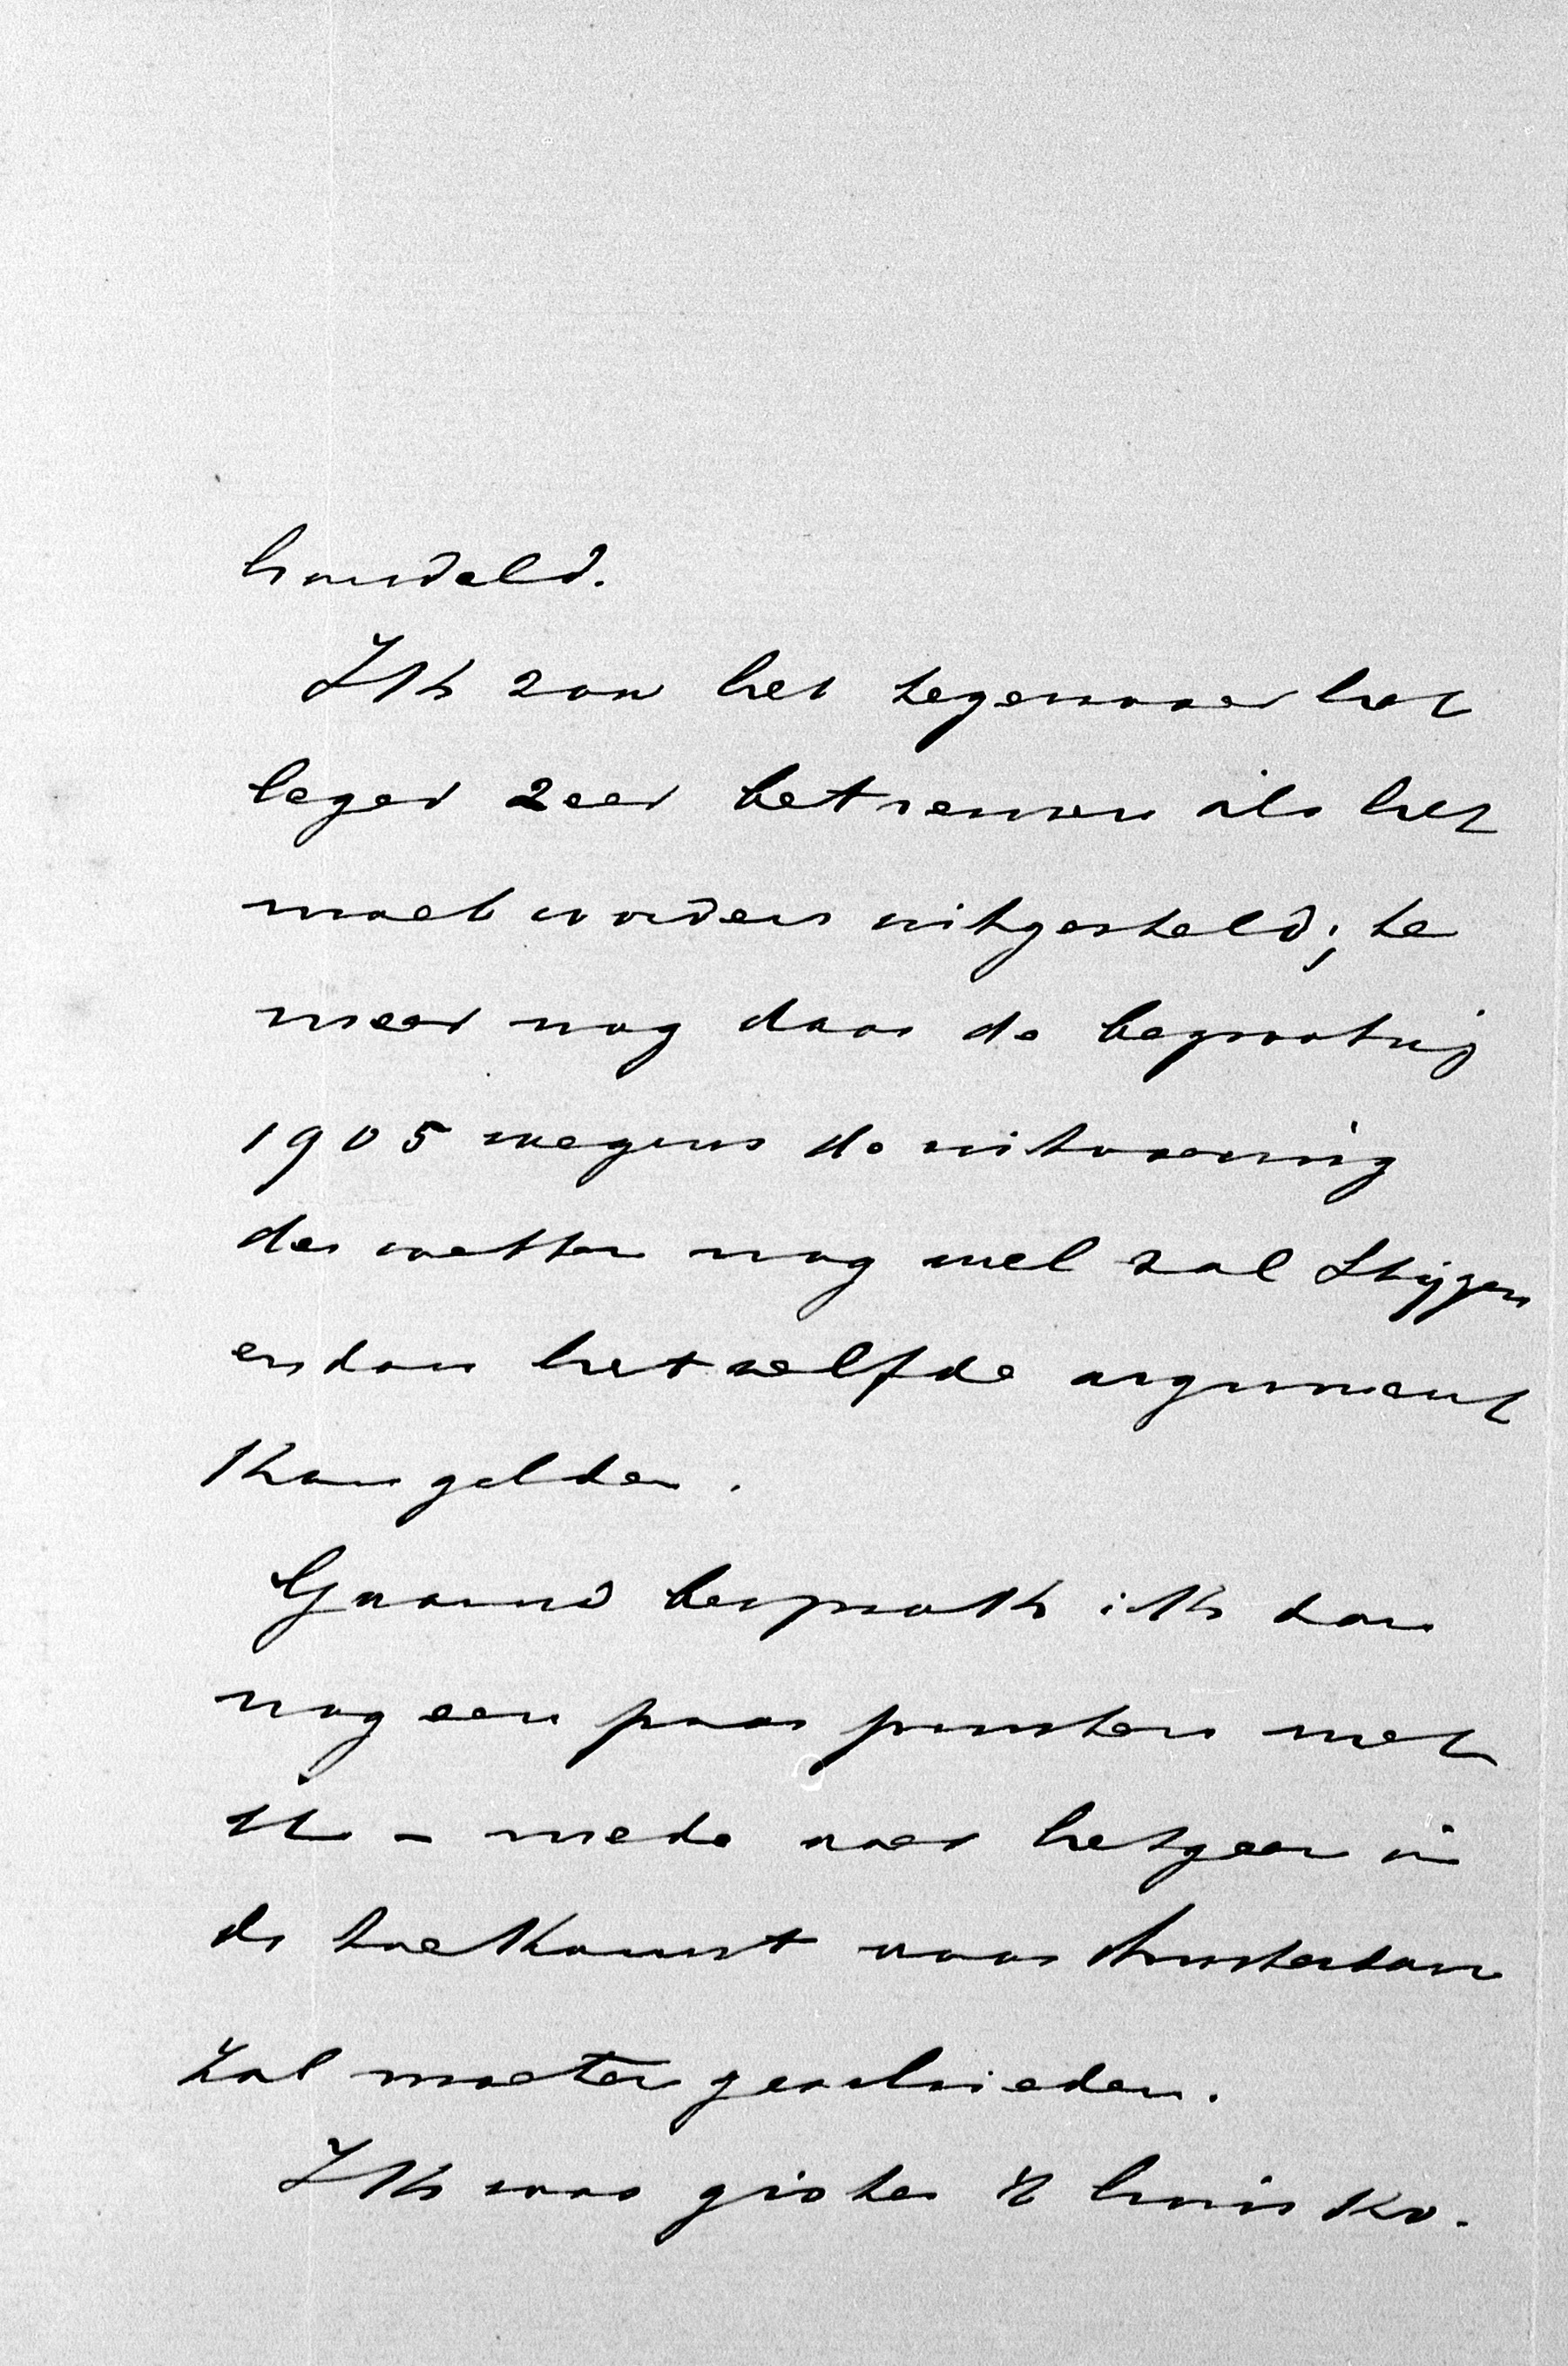 handeld.
Ik zou het tegenover het
leger zeer betreuren als het
moet worden uitgesteld; te
meer nog daar de begrooting
1905 wegens de uitvoering
der wetten nog wel zal stijgen
en dan hetzelfde argument
kan gelden.
Gaarne besprak ik dan
nog een paar punten met
U - mede over hetgeen in
de toekomst voor Amsterdam
zal moeten geschieden.
Ik was gister 't huis Ko.